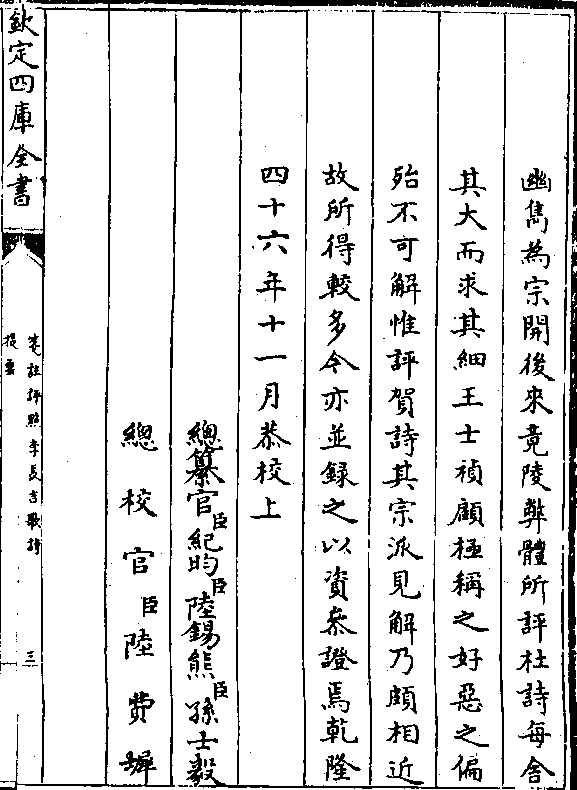 幽雋為宗開後來竟陵弊體所評杜詩每舍
其大而求其細王士禎顧極稱之好惡之偏
殆不可解惟評賀詩其宗派見解乃頗相近
故所得較多今亦並録之以資叅證焉乾隆
四十六年十一月恭校上
總纂官臣紀昀臣陸錫熊臣孫士毅
總校官臣陸費墀
欽定四庫全書
箋註評點李長吉歌詩
提要
三